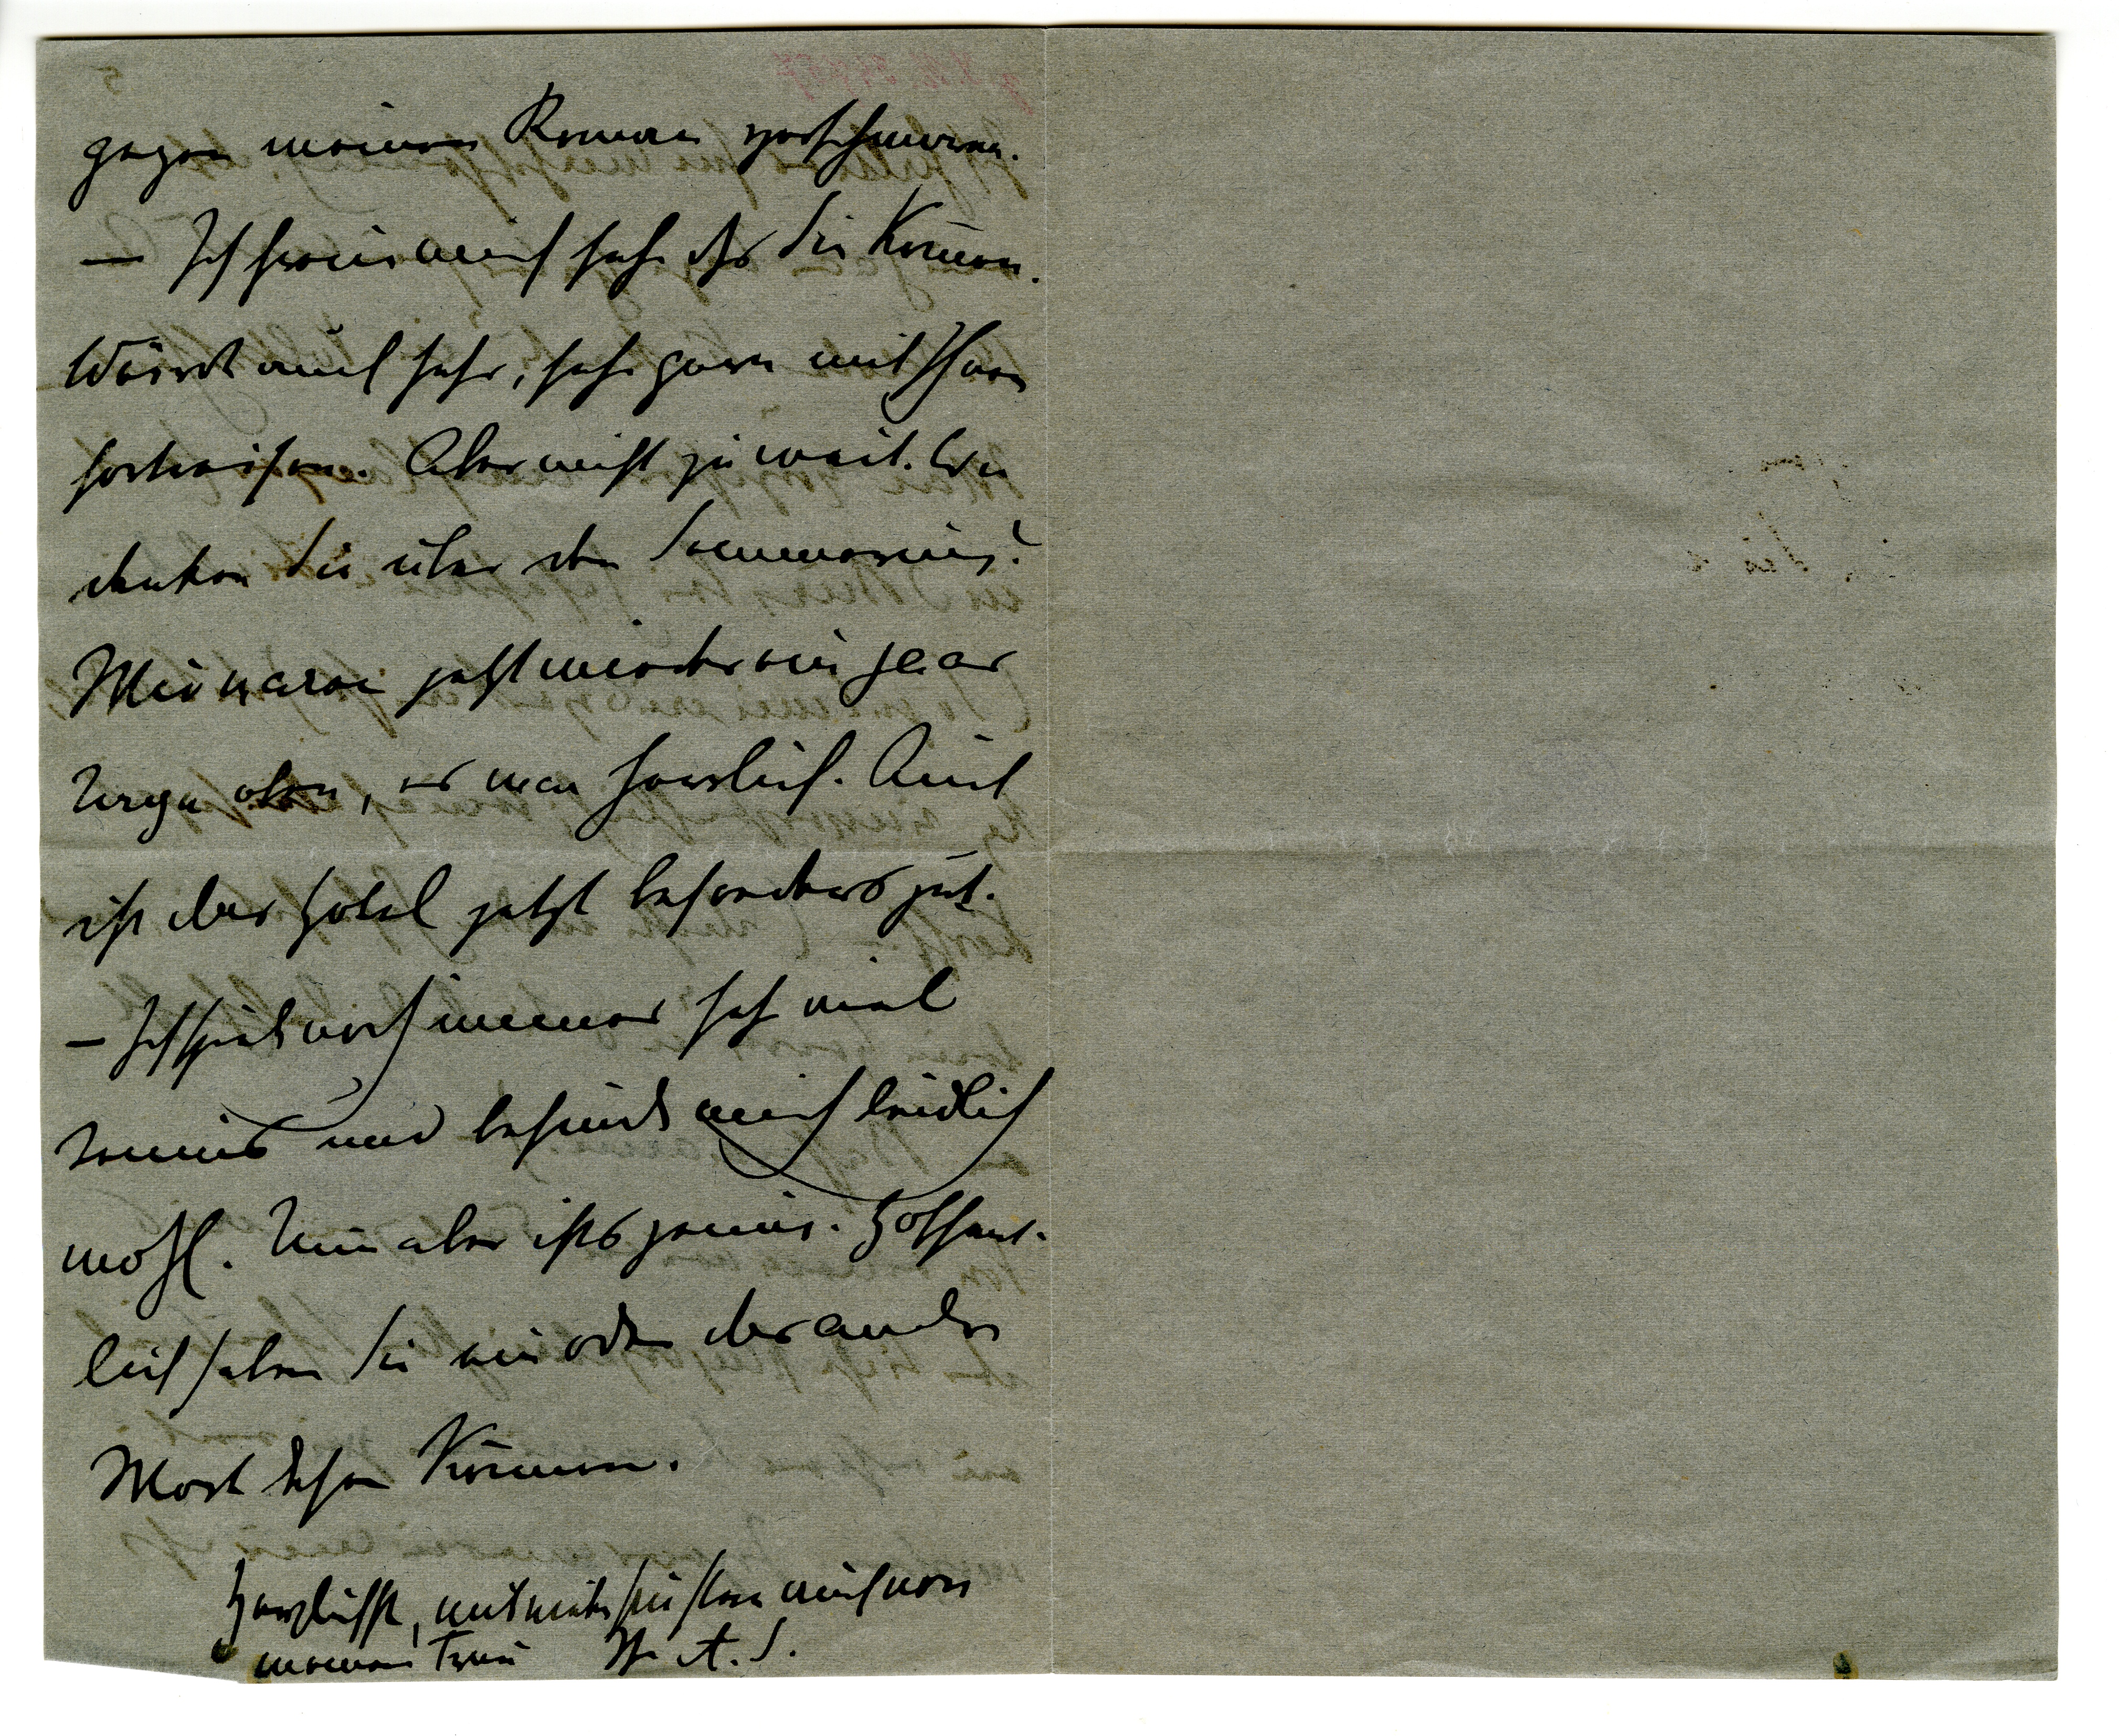 gegen meinen Roman verschwinden.
– Ich freue mich sehr dß Sie kommen.
Würde auch sehr, sehr gern mit Ihnen
fortreisen. Aber nicht zu weit. Wie
denken Sie über den Semmering?
Wir waren jetzt wieder ein paar
Tage oben, es war herrlich. Auch
ist das Hotel jetzt besonders gut.
– Ich spiele noch immer sehr viel
Tennis und befinde mich leidlich
wohl. Nun aber ists genug. Hoffent-
lich haben Sie ein oder das andre
Wort lesen können.
Herzlichst, mit vielen Grüßen auch von
meiner Frau Ihr A. S.